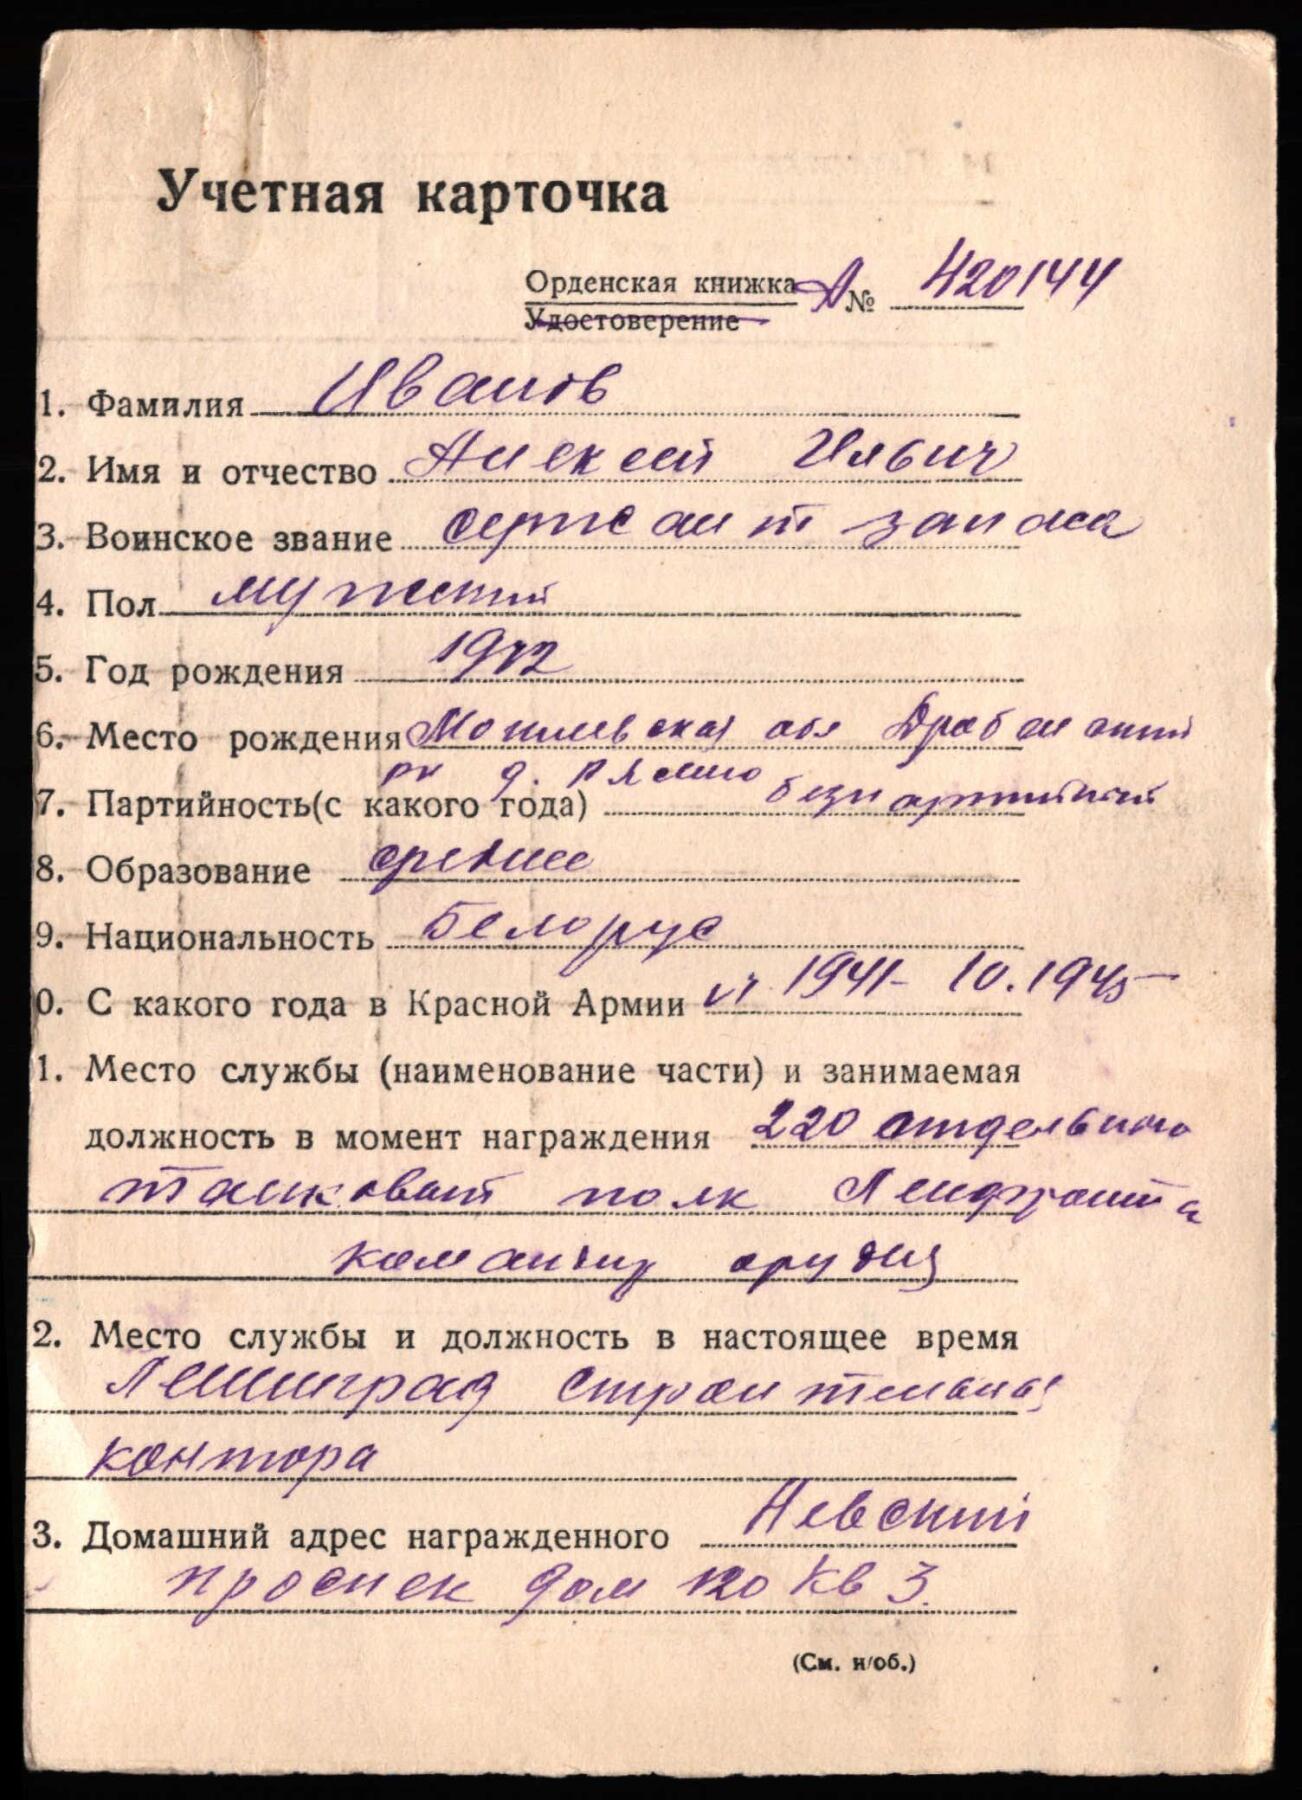 Учетная карточка
Орденская книжка А № 420144
Удостоверение
1. Фамилия Иванов
2. Имя и отчество Алексей Ильич
3. Воинское звание сержант запаса
4. Пол мужской
5. Год рождения 1912
6. Место рождения Могилевская обл Дрибинский
рн д. Рясно
7. Партийность(с какого года) безпартийный
8. Образование среднее
9. Национальность Белорус
0. С какого года в Красной Армии 1941- 10.1945
1. Место службы (наименование части) и занимаемая
должность в момент награждения 220 отдельного
танковый полк Ленфронта
командир орудия
2. Место службы и должность в настоящее время
Ленинград строительная
контора
3. Домашний адрес награжденного Невский
проспек дом 120 кв 3.
(См. н/об.)